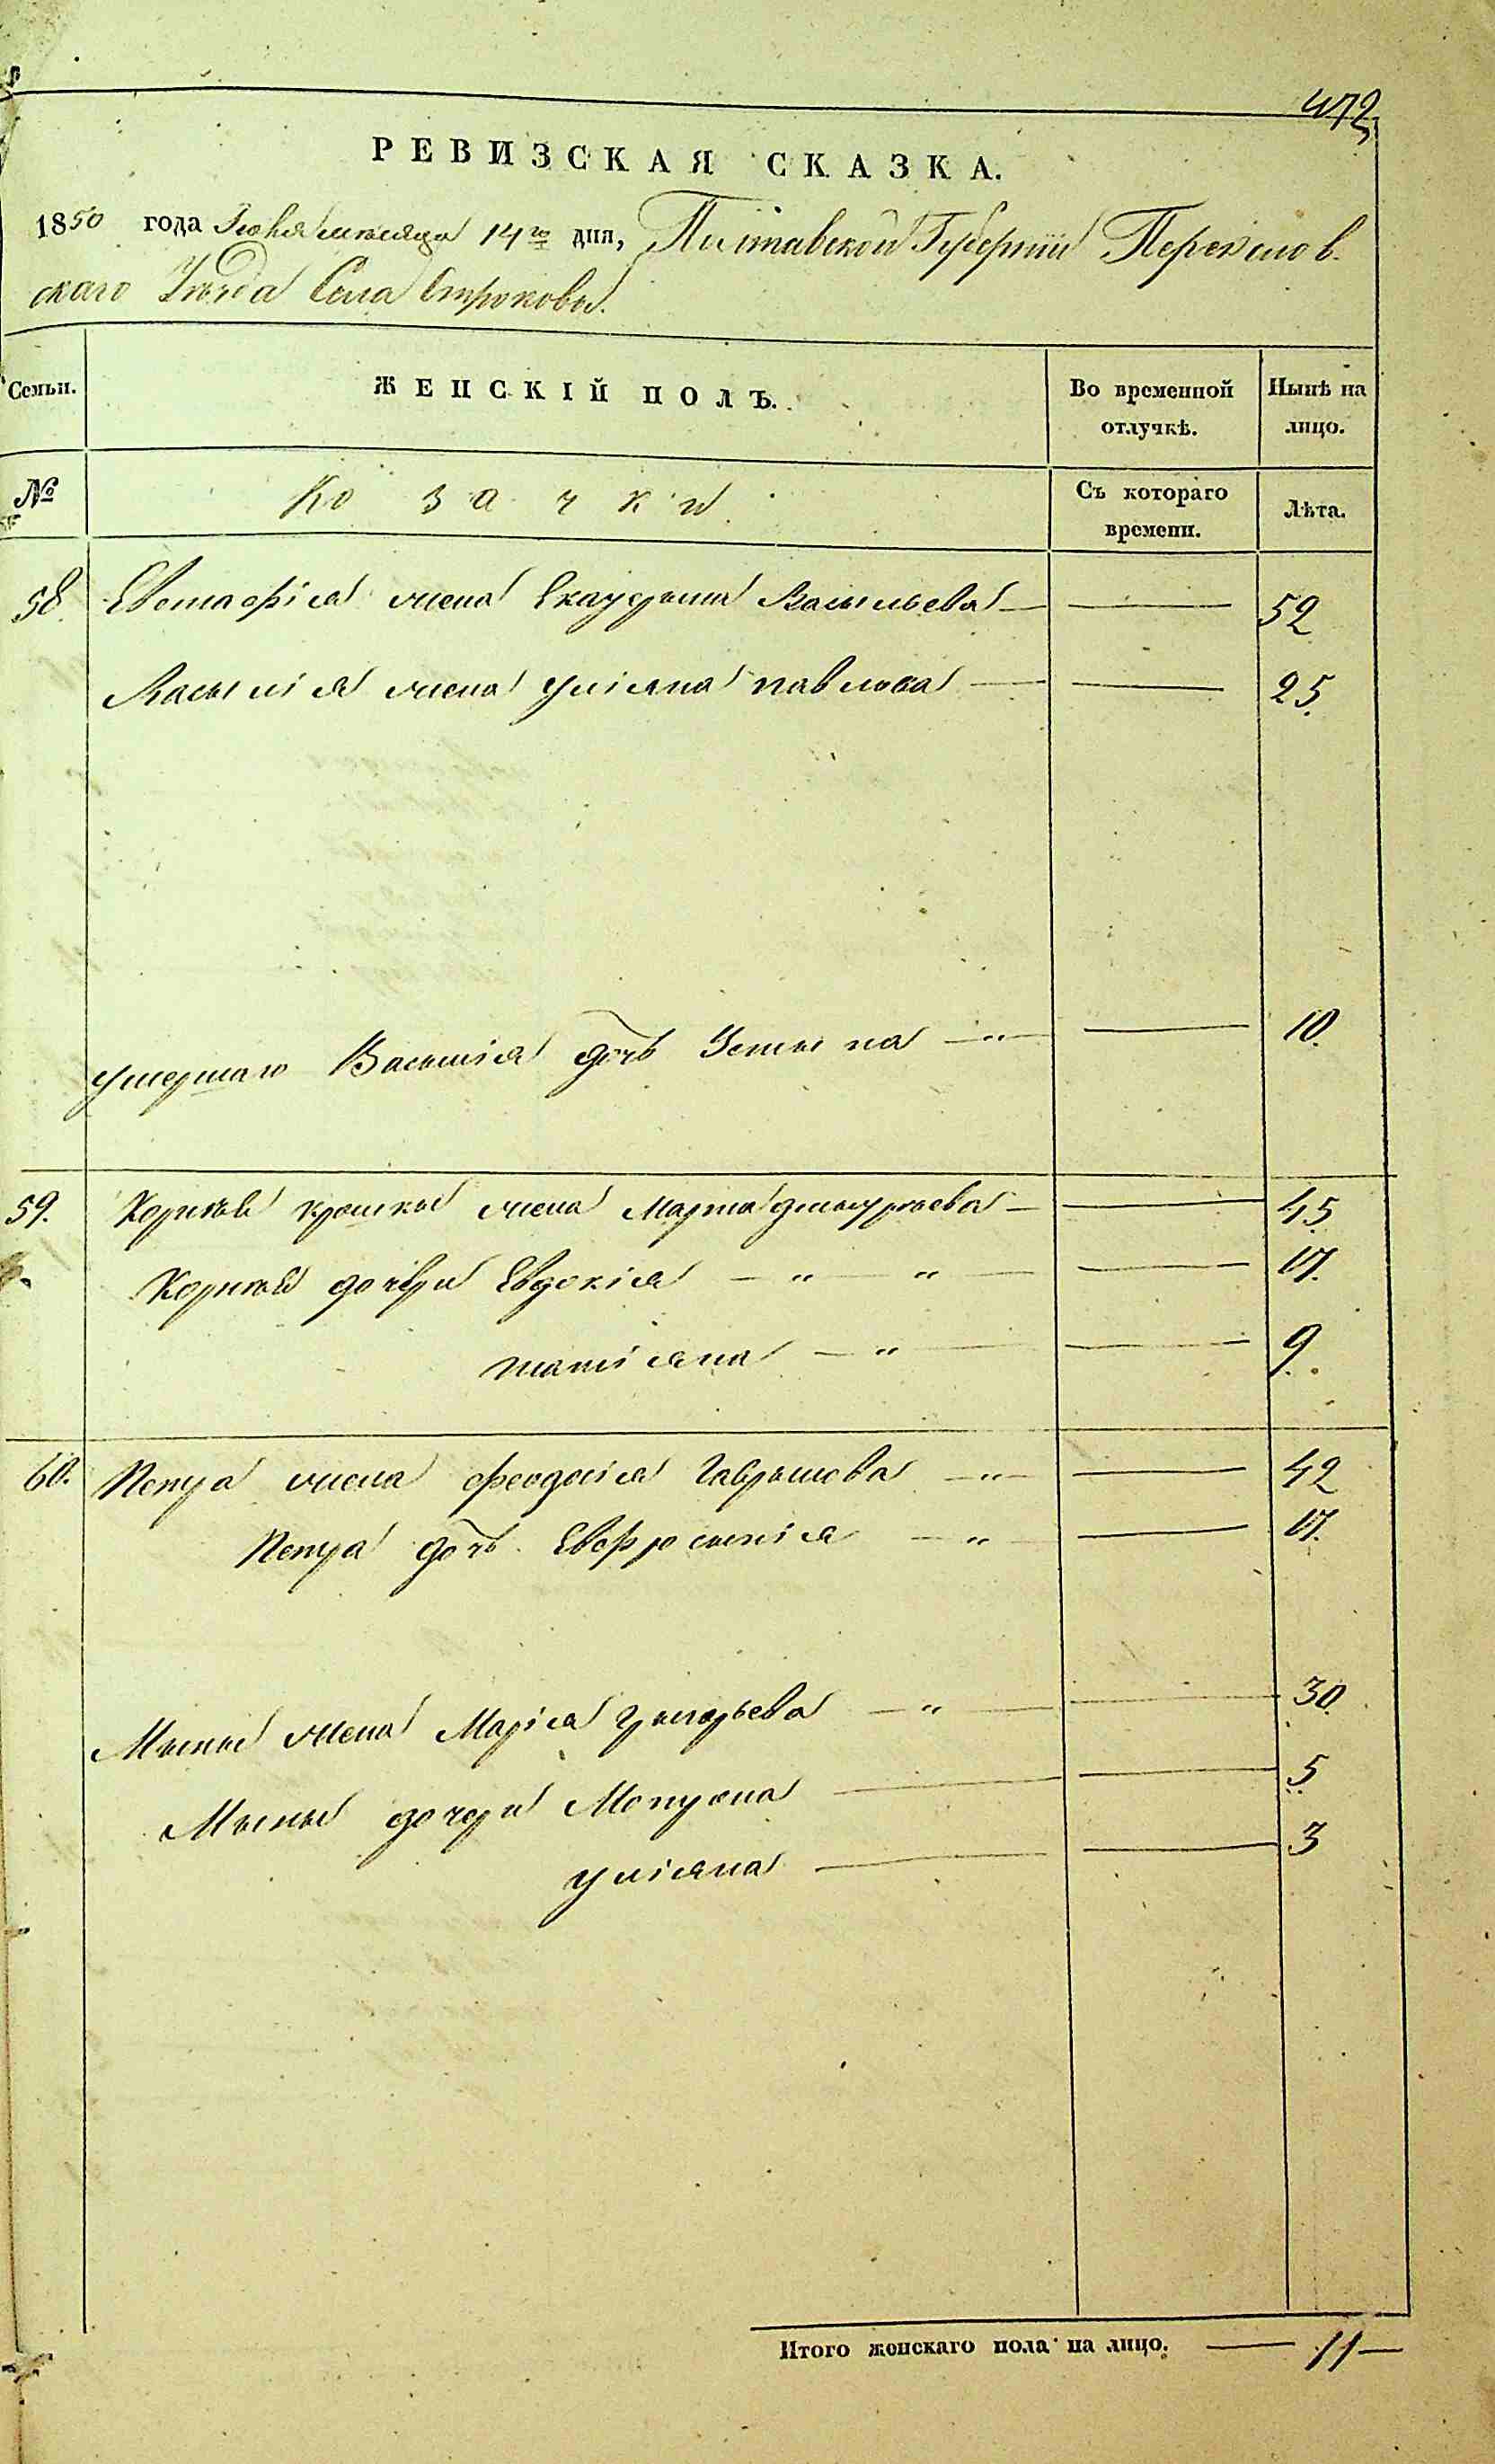 472
РЕВИЗСКАЯ СКАЗКА.
1850 года Июня месяца 14го дня, Полтавской Губернии Переяслов-
скаго Уѣзда Села Строковы.
Семьи. ЖЕНСКІЙ ПОЛЪ. Во временной отлучкѣ. Нынѣ на лицо.
№ Козачки Съ котораго времени. Лѣта.
58. Евстафія жена Екатерина Васильева — — 52
Василія жена Уліяна Павлова — — 25.
умершаго Василія дочь Устина — " — — 10.
59. Корнѣя жена Марта Дмитриева — — 45
Корнѣя дочери Евдокія — " — " — — 17.
Татіяна — " — — 9.
60. Петра жена Феодосія Гаврилова — " — — 42
Петра дочь Евфросинія — " — 17.
Мины жена Марія Григорьева — " — — 30.
Мины дочери Мотрона — — 5
Уліяна — — 3
Итого женскаго пола на лицо. — 11 —